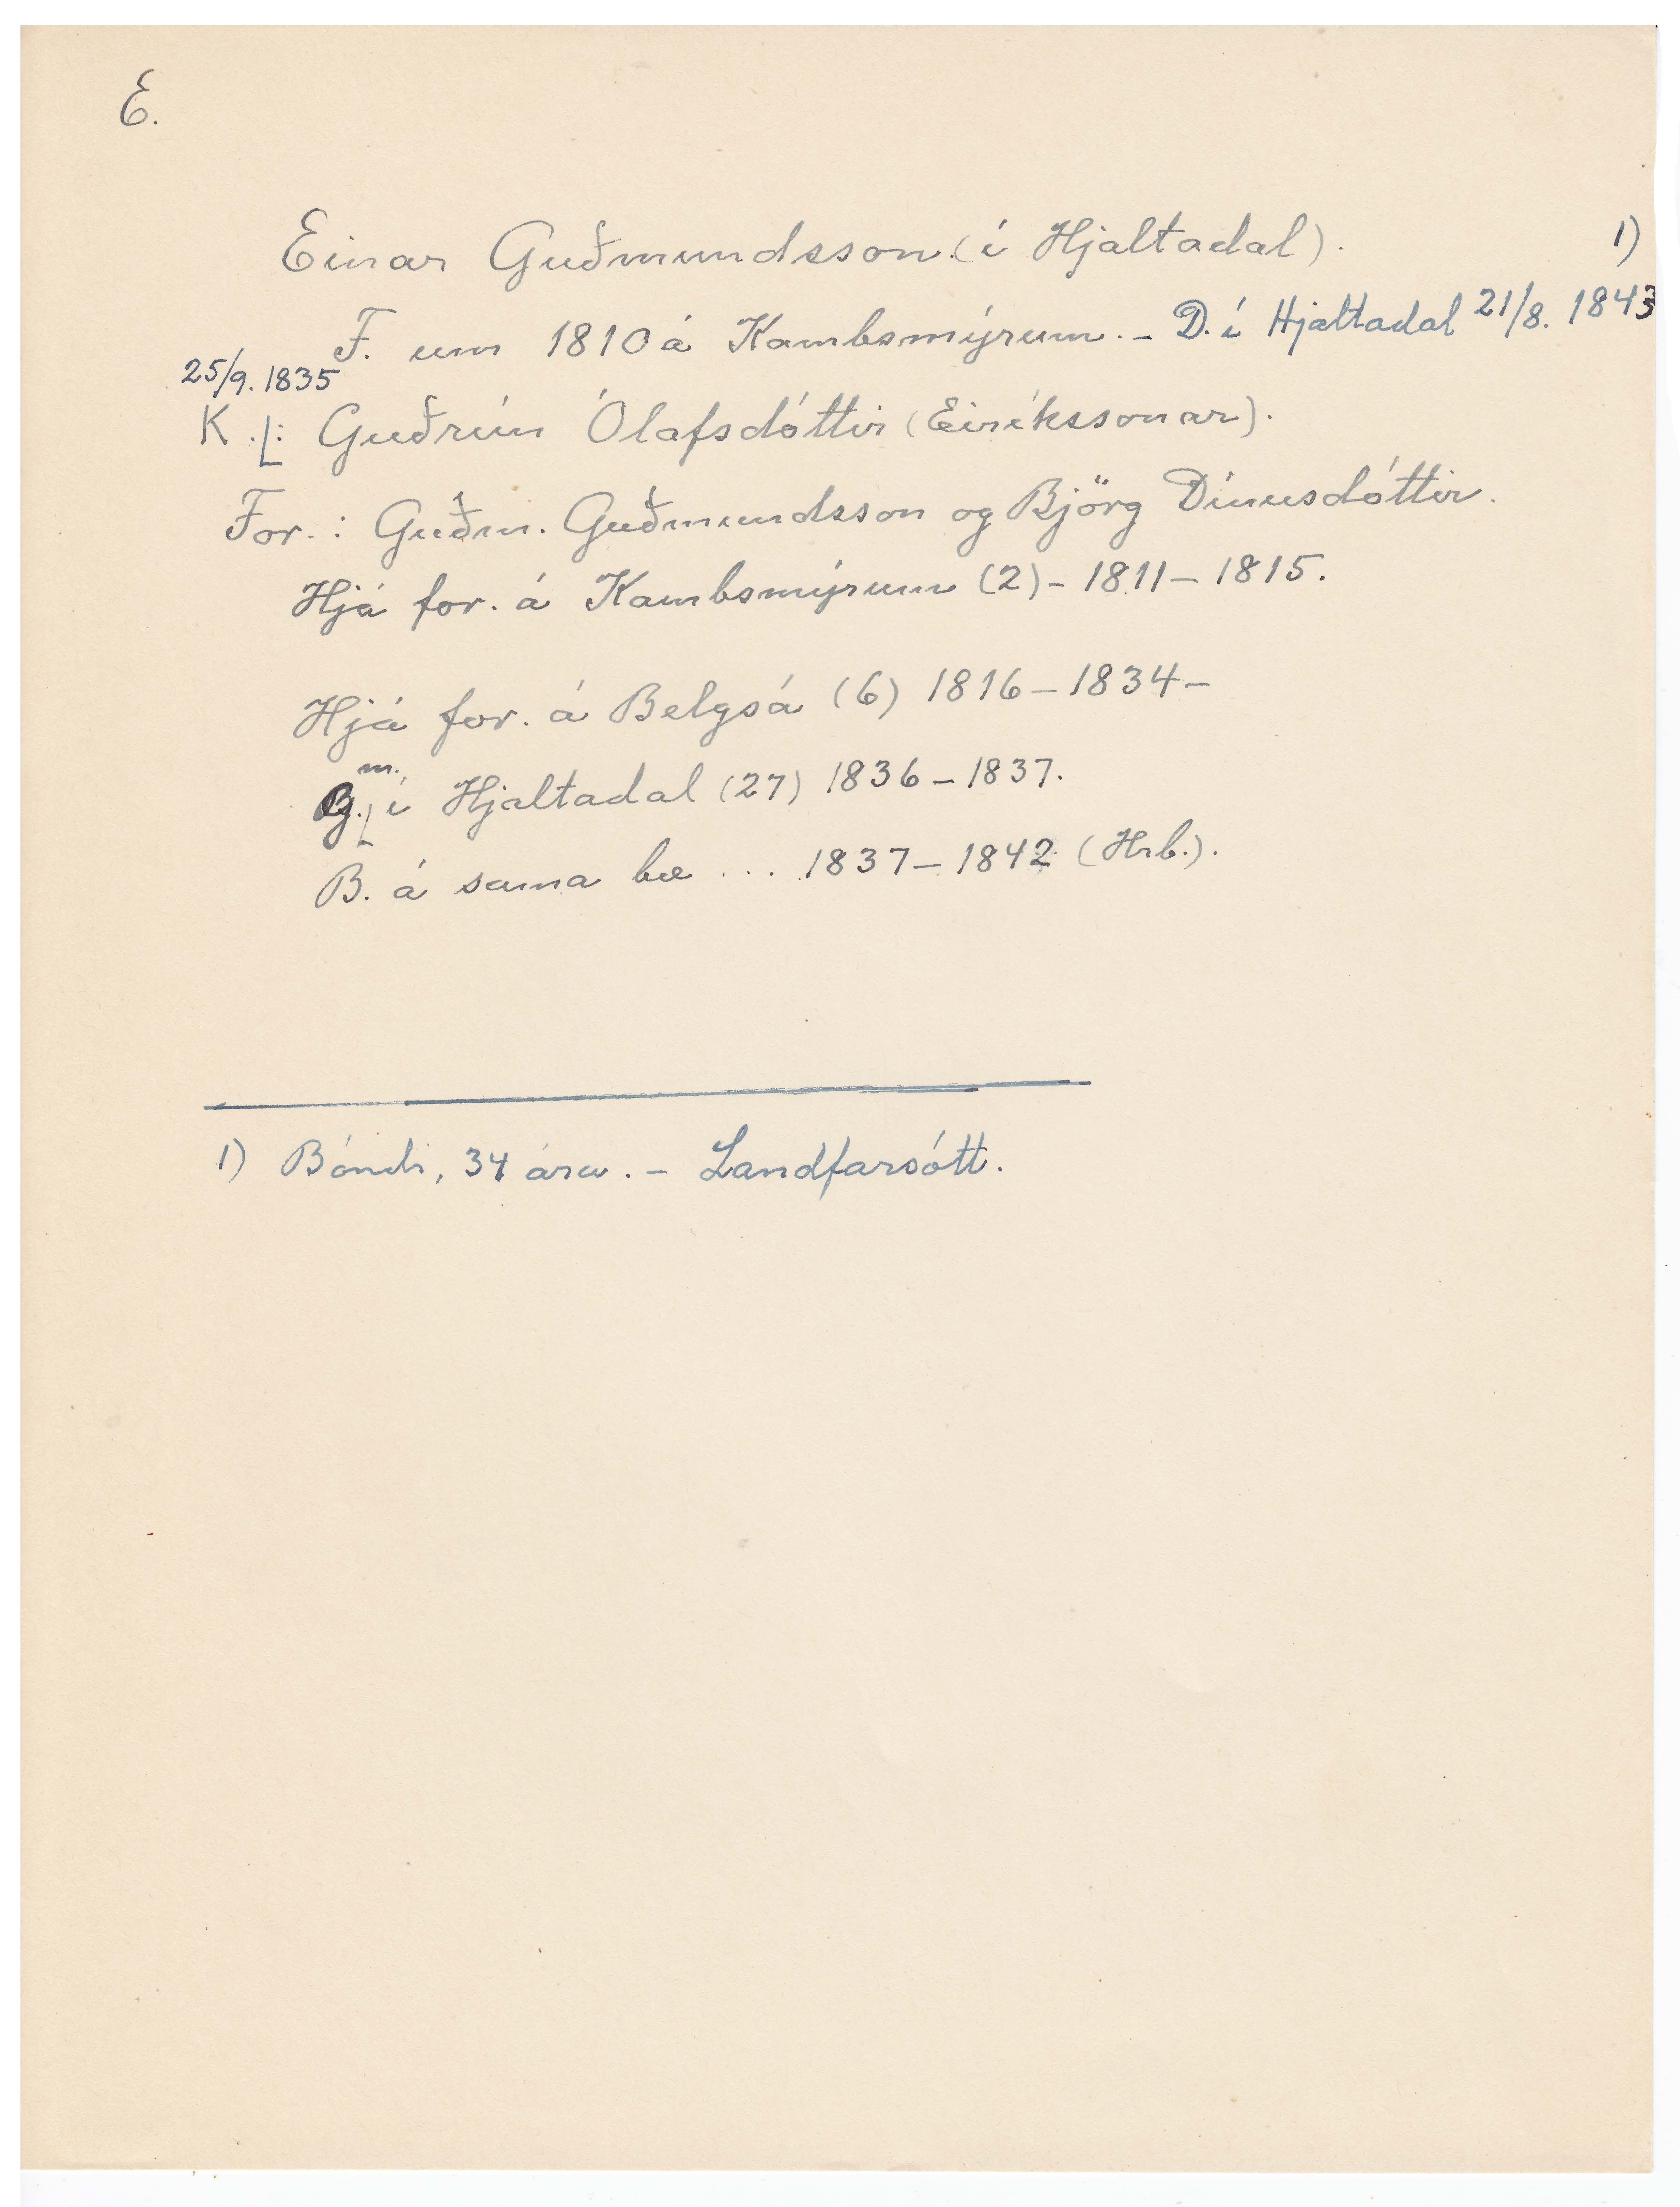 E.
Einar Guðmundsson (í Hjaltadal).
1)
F. um 1810 á Kambsmýrum. – D. í Hjaltadal 21/8. 1843
25/9. 1835
K.: Guðrún Ólafsdóttir (Eiríkssonar).
For.: Guðm. Guðmundsson og Björg Dínusdóttir.
Hjá for. á Kambsmýrum (2) – 1811 – 1815.
Hjá for. á Belgsá (6) 1816 – 1834 –
m.
í Hjaltadal (27) 1836 – 1837.
B. á sama bæ ... 1837 – 1842 (Hrb.).
1) Bóndi, 34 ára. – Landfarsótt.